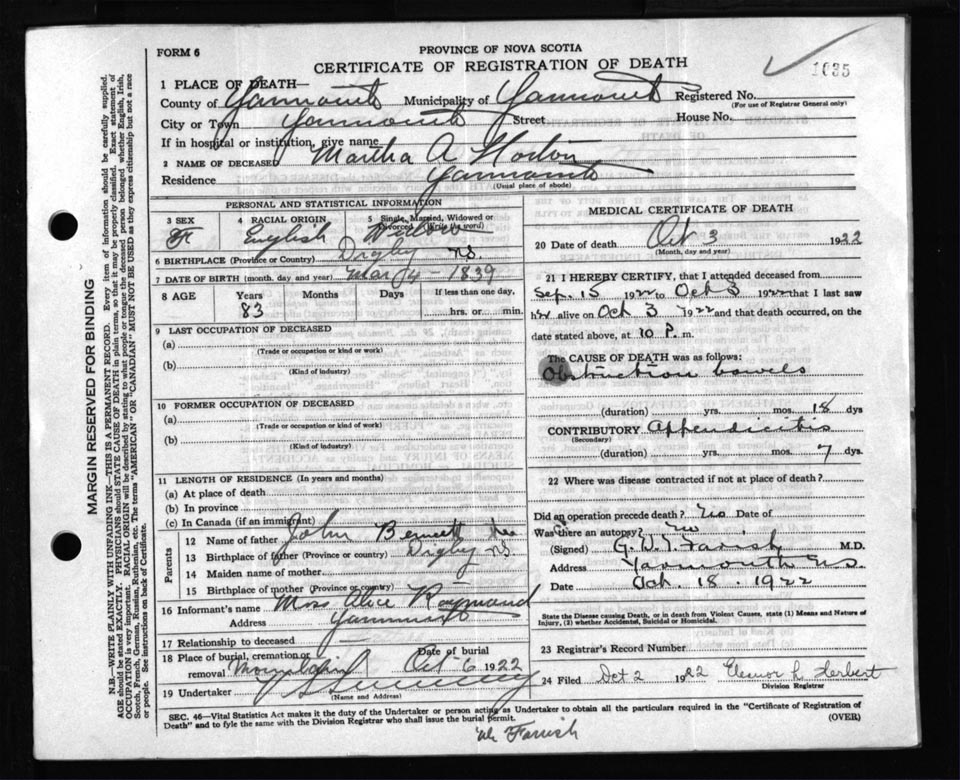 FORM 6
PROVINCE OF NOVA SCOTIA
CERTIFICATE OF REGISTRATION OF DEATH
1635
1 PLACE OF DEATH—
County of Yarmouth Municipality of Yarmouth Registered No.
(For use of Registrar General only)
City or Town Yarmouth Street House No.
If in hospital or institution, give name
2 NAME OF DECEASED Martha A
Residence Yarmouth
(Usual place of abode)
MARGIN RESERVED FOR BINDING
N.B.—WRITE PLAINLY WITH UNFADING INK—THIS IS A PERMANENT RECORD. Every item of information should be carefully supplied.
AGE should be stated EXACTLY. PHYSICIANS should STATE CAUSE OF DEATH in plain terms, so that it may be properly classified. Exact statement of
OCCUPATION is very important. RACIAL ORIGIN will be described by stating to what people or tongue the deceased person belonged whether English, Irish,
Scotch, French, German, Russian, Ruthenian, etc. The terms "AMERICAN" OR "CANADIAN" MUST NOT BE USED as they express citizenship but not a race
or people. See instructions on back of Certificate.
PERSONAL AND STATISTICAL INFORMATION
3 SEX 4 RACIAL ORIGIN 5 Single, Married, Widowed or
Divorced (Write the word)
F English Widow
6 BIRTHPLACE (Province or Country) Digby N.S.
7 DATE OF BIRTH (month, day and year) Mar 4 - 1839
8 AGE Years Months Days If less than one day,
83 hrs. or min.
9 LAST OCCUPATION OF DECEASED
(a)
(Trade or occupation or kind or work)
(b)
(Kind of industry)
10 FORMER OCCUPATION OF DECEASED
(a)
(Trade or occupation or kind or work)
(b)
(Kind of industry)
11 LENGTH OF RESIDENCE (In years and months)
(a) At place of death
(b) In province
(c) In Canada (if an immigrant)
Parents
12 Name of father John
13 Birthplace of father (Province or country) Digby NS
14 Maiden name of mother
15 Birthplace of mother (Province or country)
16 Informant's name Alice Raymond
Address Yarmouth
17 Relationship to deceased
18 Place of burial, cremation or removal Mountain Date of burial Oct 6 1922
19 Undertaker
(Name and Address)
MEDICAL CERTIFICATE OF DEATH
20 Date of death Oct 3 1922
(Month, day and year)
21 I HEREBY CERTIFY, that I attended deceased from
Sep. 15 1922 to Oct 3 1922 that I last saw
her alive on Oct 3 1922 and that death occurred, on the
date stated above, at 10 P. m.
The CAUSE OF DEATH was as follows:
Obstruction bowels
(duration) yrs. mos. 18 dys
CONTRIBUTORY Appendicitis
(Secondary)
(duration) yrs. mos. 7 dys.
22 Where was disease contracted if not at place of death?
Did an operation precede death? No Date of
Was there an autopsy? No
(Signed) G. W. T. Farish M.D.
Address Yarmouth N.S.
Date Oct. 18. 1922
State the Disease causing Death, or in death from Violent Causes, state (1) Means and Nature of
Injury, (2) whether Accidental, Suicidal or Homicidal.
23 Registrar's Record Number
24 Filed Oct 2 1922 Elenor L Herbert
Division Registrar
SEC. 46—Vital Statistics Act makes it the duty of the Undertaker or person acting as Undertaker to obtain all the particulars required in the "Certificate of Registration of
Death" and to fyle the same with the Division Registrar who shall issue the burial permit.
(OVER)
Farish